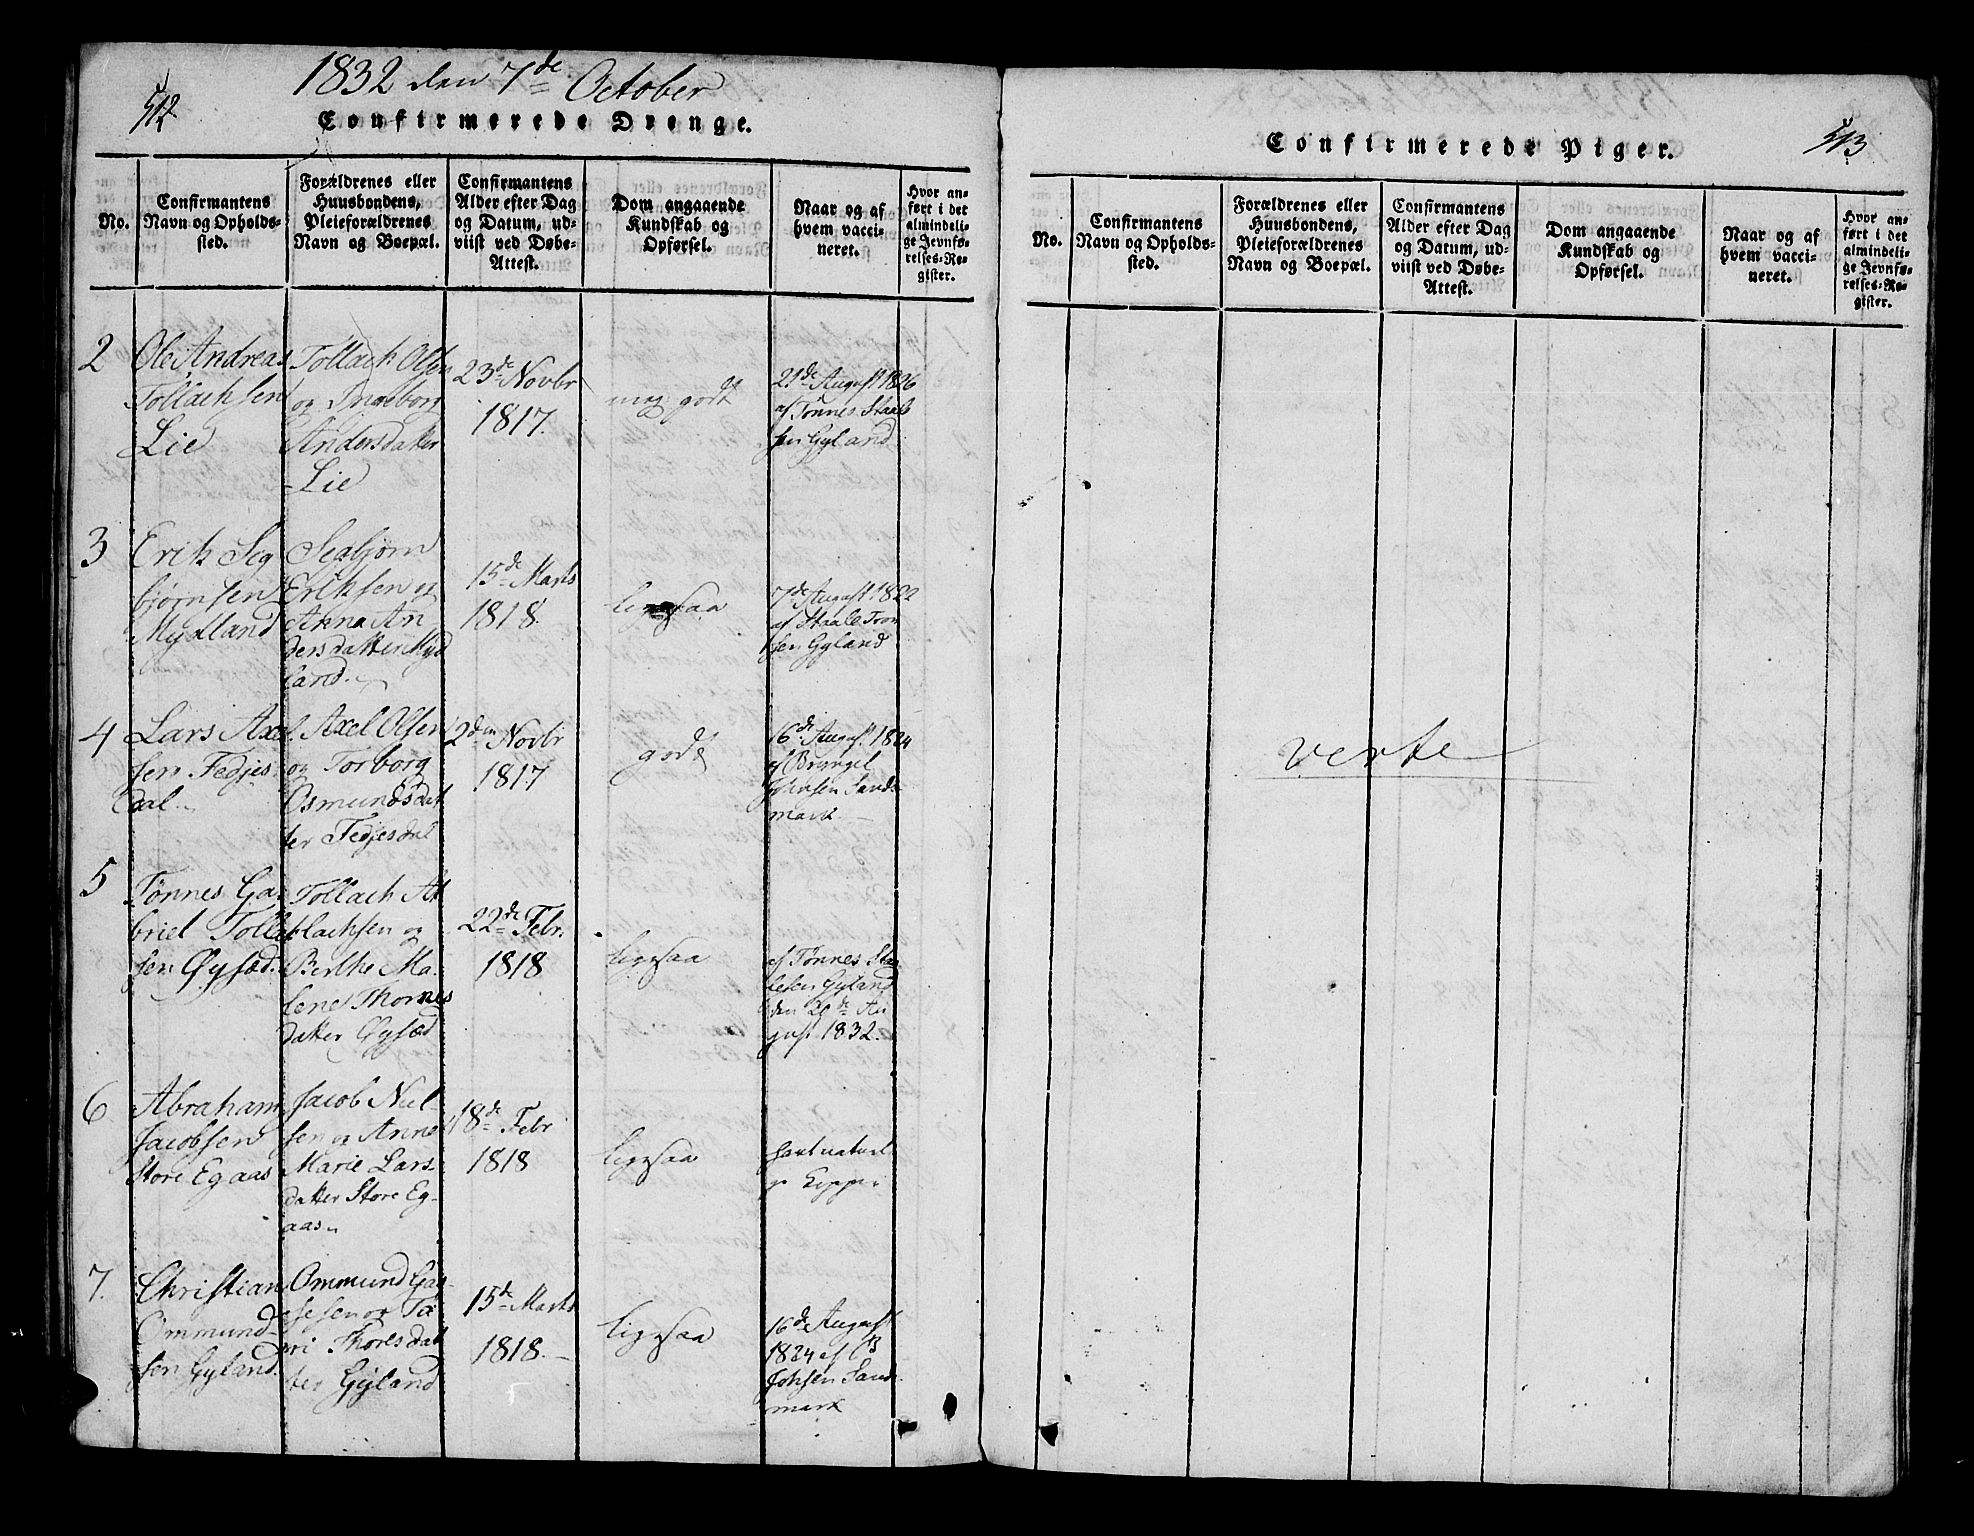 512
1832 den 7de October
Confirmerede Drenge.
No.
Confirmantens
Navn og Opholds-
sted.
Forældrenes eller
Huusbondens,
Pleieforældrenes
Navn og Boepæl.
Confirmantens
Alder efter Dag
og Datum, ud-
viist ved Døbe-
Attest.
Dom angaaende
Kundskab og
Opførsel.
Naar og af
hvem vacci-
neret.
Hvor an-
ført i det
almindeli-
ge Jevnfø-
relses-Re-
gister.
2
Ole Andreas
Tollachsen
Lie
Tollach Olsen
og Ingeborg
Andersdatter
Lie
23de Novbr
1817.
meg godt
21de August 1826
af Tønnes Staale
sen Gyland
3
Erik Seg
bjørnsen
Mydland
Segbjørn
Eriksen og
Anna An
dersdatter Myd
land.
15de Marts
1818.
ligesaa
7de August 1822
af Staale Tron
sen Gyland
4
Lars Axel
sen Fedjes
dal
Axel Olsen
og Torborg
Osmundsdat
ter Fedjesdal
2den Novbr
1817
godt
16de August 1824
af
Johnsen Sand
mark
5
Tønnes Ga
briel Tollak
sen Gysæd.
Tollach At
lachsen og
Berthe Ma-
lene Thornes
datter Gysæd
22de Febr.
1818
ligesaa
af Tønnes Staa
lesen Gyland
den 20de Au
gust 1832.
6
Abraham
Jacobsen
Store Egaas
Jacob Niel-
sen og Anne
Marie Lars
datter Store Eg-
aas
18de Febr
1818
ligesaa
havt naturl
ge Kopper
7.
Christian
Ommund-
sen Gyland.
Ommund Gas-
sesen og Ta
ri Thoresdat
ter Gyland
15de Marts
1818.
ligesaa
16de August
1824 af B
Johsen Sand
mark
513
Confirmerede Piger.
No.
Confirmantens
Navn og Opholds-
sted.
Forældrenes eller
Huusbondens,
Pleieforældrenes
Navn og Boepæl.
Confirmantens
Alder efter Dag
og Datum, ud-
viist ved Døbe-
Attest.
Dom angaaende
Kundskab og
Opførsel.
Naar og af
hvem vacci-
neret.
Hvor an-
ført i det
almindeli-
ge Jevnfø-
relses-Re-
gister.
verte